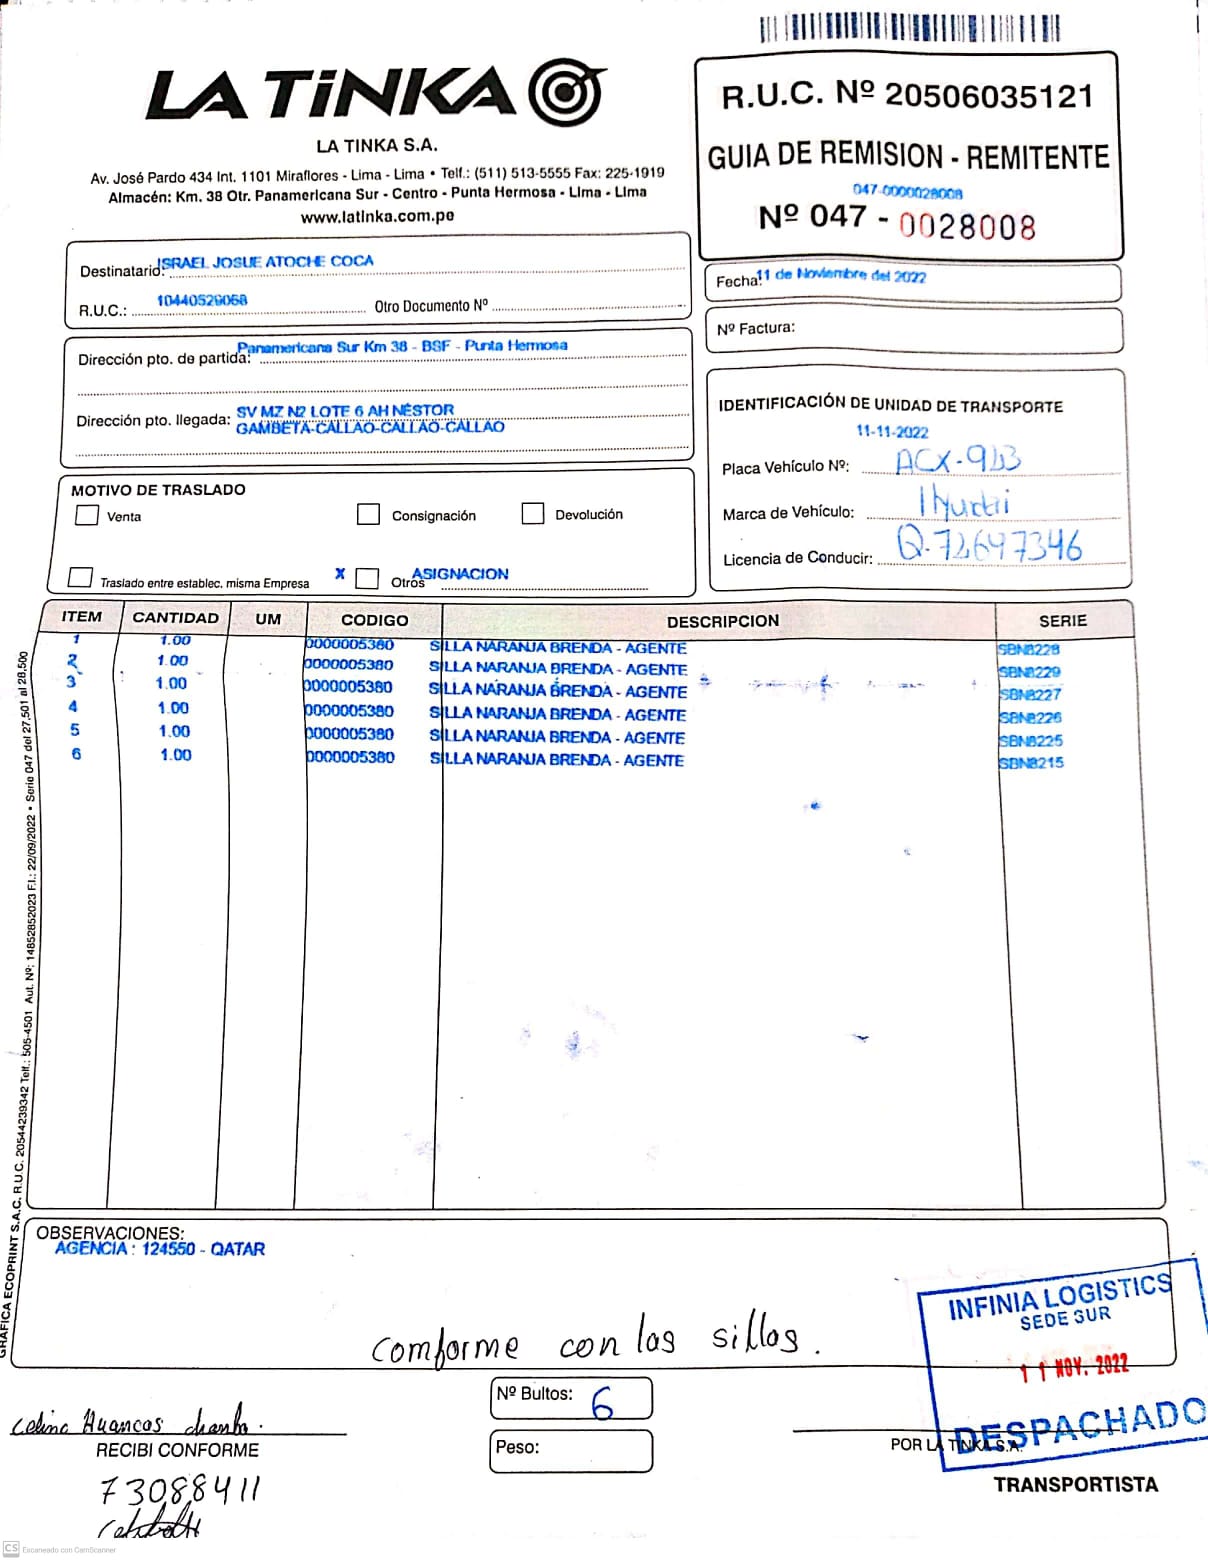 LA TiNKA
LA TINKA S.A.
Av. José Pardo 434 Int. 1101 Miraflores - Lima - Lima • Telf.: (511) 513-5555 Fax: 225-1919
Almacén: Km. 38 Otr. Panamericana Sur - Centro - Punta Hermosa - Lima - Lima
www.latinka.com.pe
R.U.C. Nº 20506035121
GUIA DE REMISION - REMITENTE
047-0000028008
Nº 047 - 0028008
Destinatario: ISRAEL JOSUE ATOCHE COCA
R.U.C.: 10440529068 Otro Documento Nº
Fecha: 11 de Noviembre del 2022
Nº Factura:
Dirección pto. de partida: Panamericana Sur Km 38 - BSF - Punta Hermosa
Dirección pto. llegada: SV MZ N2 LOTE 6 AH NÉSTOR
GAMBETA-CALLAO-CALLAO-CALLAO
IDENTIFICACIÓN DE UNIDAD DE TRANSPORTE
11-11-2022
Placa Vehículo Nº: ACX-943
Marca de Vehículo:
Licencia de Conducir: Q-72647346
MOTIVO DE TRASLADO
Venta Consignación Devolución
Traslado entre establec. misma Empresa X Otros ASIGNACION
ITEM CANTIDAD UM CODIGO DESCRIPCION SERIE
1 1.00 0000005380 SILLA NARANJA BRENDA - AGENTE SBN8228
2 1.00 0000005380 SILLA NARANJA BRENDA - AGENTE SBN8229
3 1.00 0000005380 SILLA NARANJA BRENDA - AGENTE SBN8227
4 1.00 0000005380 SILLA NARANJA BRENDA - AGENTE SBN8226
5 1.00 0000005380 SILLA NARANJA BRENDA - AGENTE SBN8225
6 1.00 0000005380 SILLA NARANJA BRENDA - AGENTE SBN8215
GRAFICA ECOPRINT S.A.C. R.U.C. 20544239342 Telf.: 505-4501 Aut. Nº: 14852852023 F.I.: 22/09/2022 • Serie 047 del 27,501 al 28,500
OBSERVACIONES:
AGENCIA : 124550 - QATAR
Comforme con las sillas.
INFINIA LOGISTICS
SEDE SUR
11 NOV. 2022
DESPACHADO
Nº Bultos: 6
Peso:
Celina Huancas
RECIBI CONFORME
73088411
POR LA TINKA S.A.
TRANSPORTISTA
CS Escaneado con CamScanner